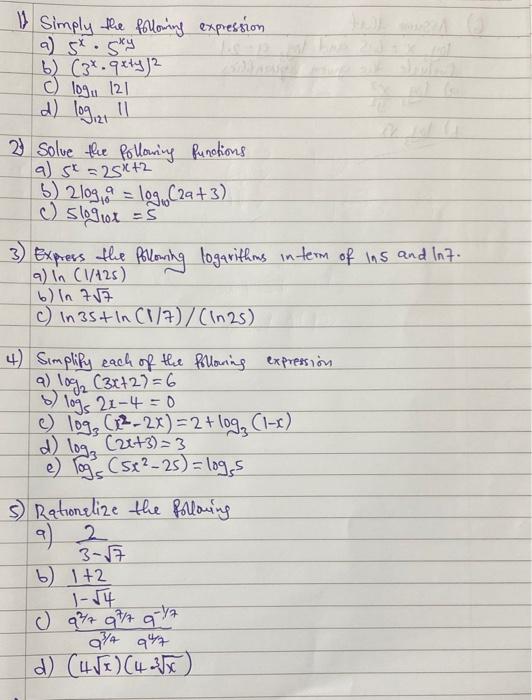 1) Simply the following expression
a) 5ˣ · 5ˣʸ
b) (3ˣ · 9ˣ⁺ʸ)²
c) log₁₁ 121
d) log₁₂₁ 11
2) Solve the following functions
a) 5ˣ = 25ˣ⁺²
b) 2log₁₀ᵃ = log₁₀(2a+3)
c) 5log₁₀x = 5
3) Express the following logarithms in term of ln5 and ln7.
a) ln (1/125)
b) ln 7√7
c) ln 35 + ln (1/7) / (ln 25)
4) Simplify each of the following expression
a) log₂ (3x+2) = 6
b) log₅ 2x-4 = 0
c) log₃ (x²-2x) = 2 + log₃ (1-x)
d) log₃ (2x+3) = 3
e) log₅ (5x²-25) = log₅5
5) Rationalize the following
a) 2
3-√7
b) 1+2
1-√4
c) a²/⁷ a⁷/⁷ a⁻¹/⁷
a³/⁷ a⁴/⁷
d) (4√x)(4∛x)